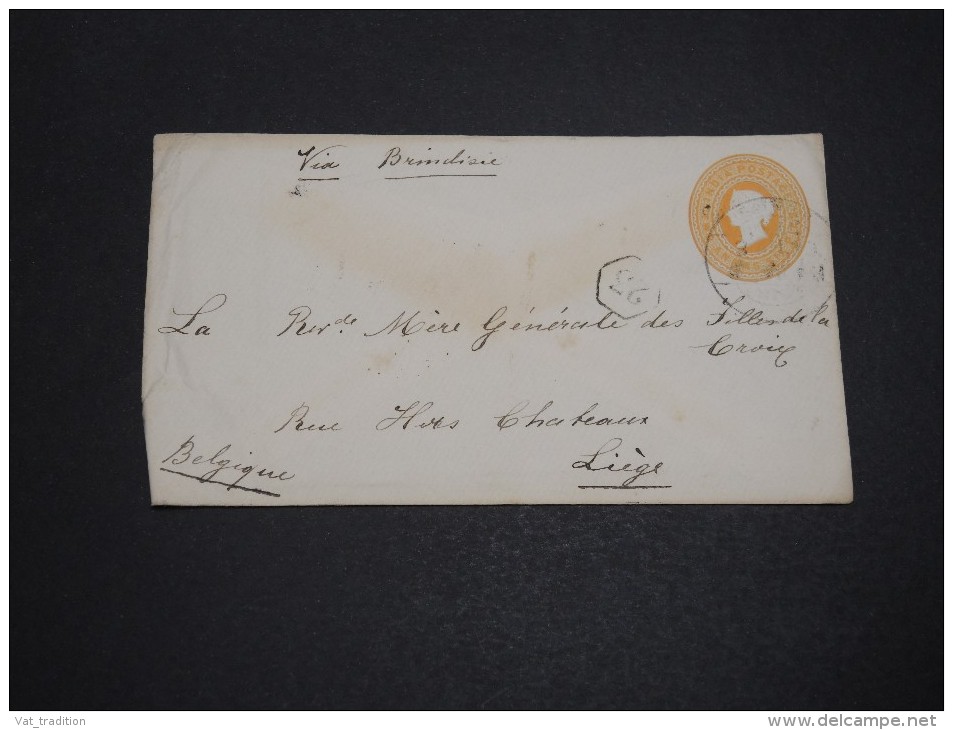 Via Brindisie
INDIA POSTAGE
23
La Revde Mère Générale des Filles de la
Croix
Rue Hors Chateaux
Belgique
Liège
Vat_tradition
www.delcampe.net